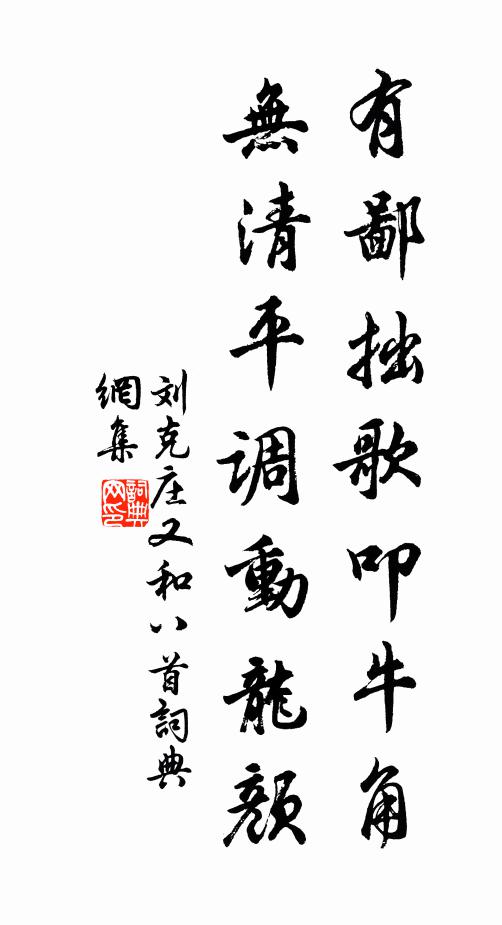 有鄙拙歌叩牛角
無清平调動龍顏
刘克庄又和八首詞典
網集
詞典网印